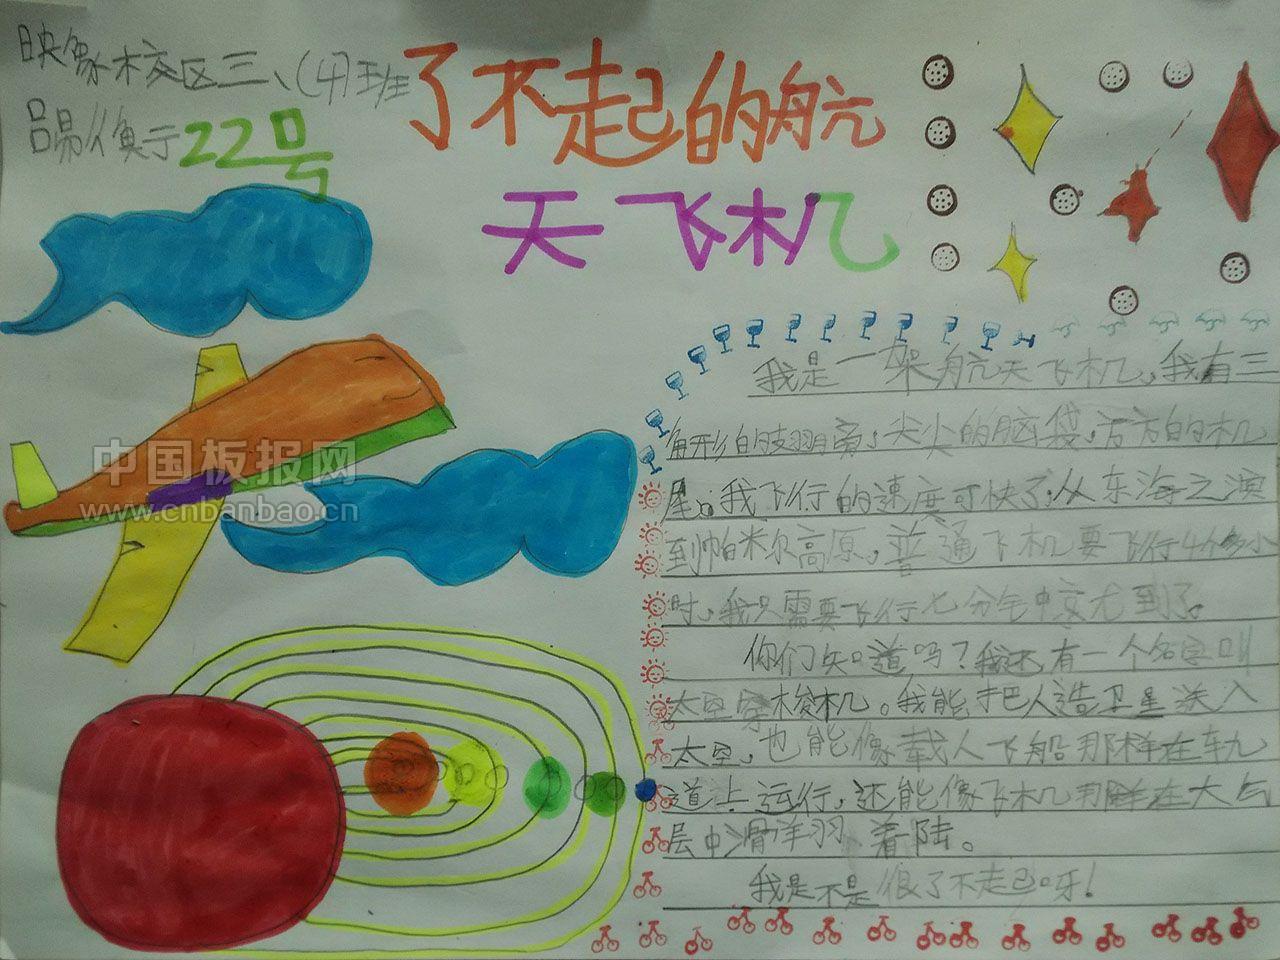 映像校区三、(4)班
22号
了不起的航
天飞机
中国板报网
www.cnbanbao.cn
我是一架航天飞机，我有三
角形的翅膀，尖尖的脑袋，方方的机
尾。我飞行的速度可快了，从东海之滨
到帕米尔高原，普通飞机要飞行4个多小
时，我只需要飞行七分钟就到了。
你们知道吗？我还有一个名字叫
太空穿梭机。我能把人造卫星送入
太空，也能像载人飞船那样在轨
道上运行，还能像飞机那样在大气
层中滑翔、着陆。
我是不是很了不起呀！